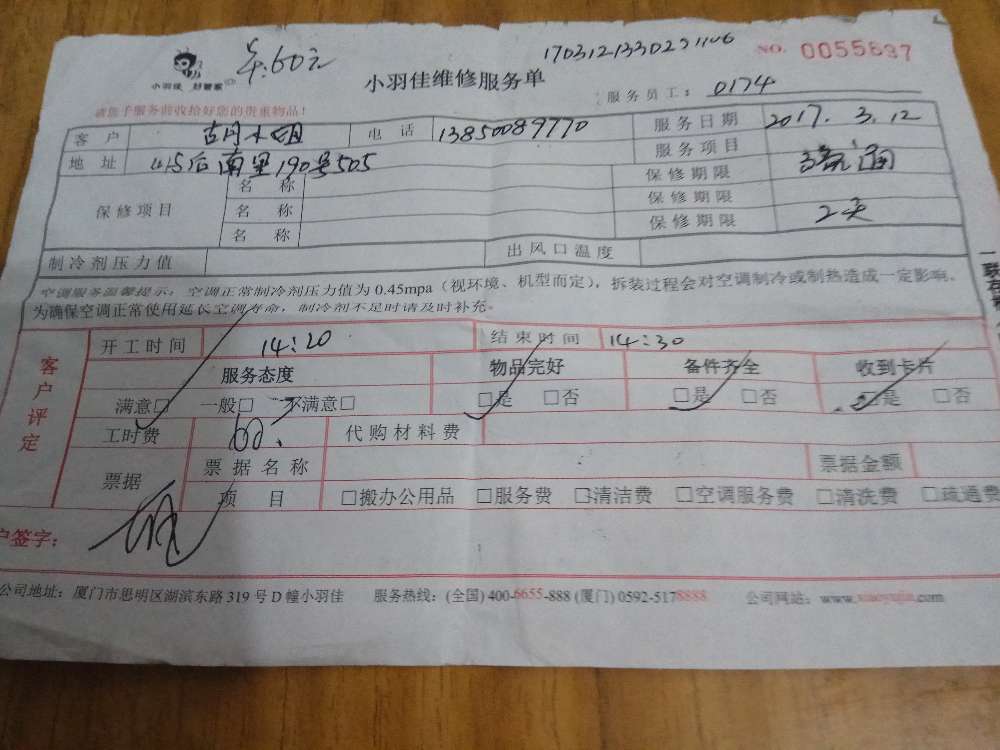 1703121330291106
NO. 0055637
60元
小羽佳维修服务单
小羽佳 好管家
服务员工： 0174
请您于服务前收拾好您的贵重物品！
客 户 胡小姐 电 话 13850089770 服务日期 2017. 3. 12
地 址 后南里190号505 服务项目 疏通
保修项目 名 称 保修期限
名 称 保修期限
名 称 保修期限 2天
制冷剂压力值 出风口温度
空调服务温馨提示：空调正常制冷剂压力值为 0.45mpa（视环境、机型而定），拆装过程会对空调制冷或制热造成一定影响。
为确保空调正常使用延长空调寿命，制冷剂不足时请及时补充。
客户评定 开工时间 14:20 结束时间 14:30
服务态度 物品完好 备件齐全 收到卡片
满意□ 一般□ 不满意□ □是 □否 □是 □否 □是 □否
工时费 60. 代购材料费
票据 票据名称 票据金额
项 目 □搬办公用品 □服务费 □清洁费 □空调服务费 □清洗费 □疏通费
户签字：
公司地址：厦门市思明区湖滨东路 319 号 D 幢小羽佳 服务热线：(全国) 400-6655-888 (厦门) 0592-5178888 公司网站：www.xiaoyujia.com